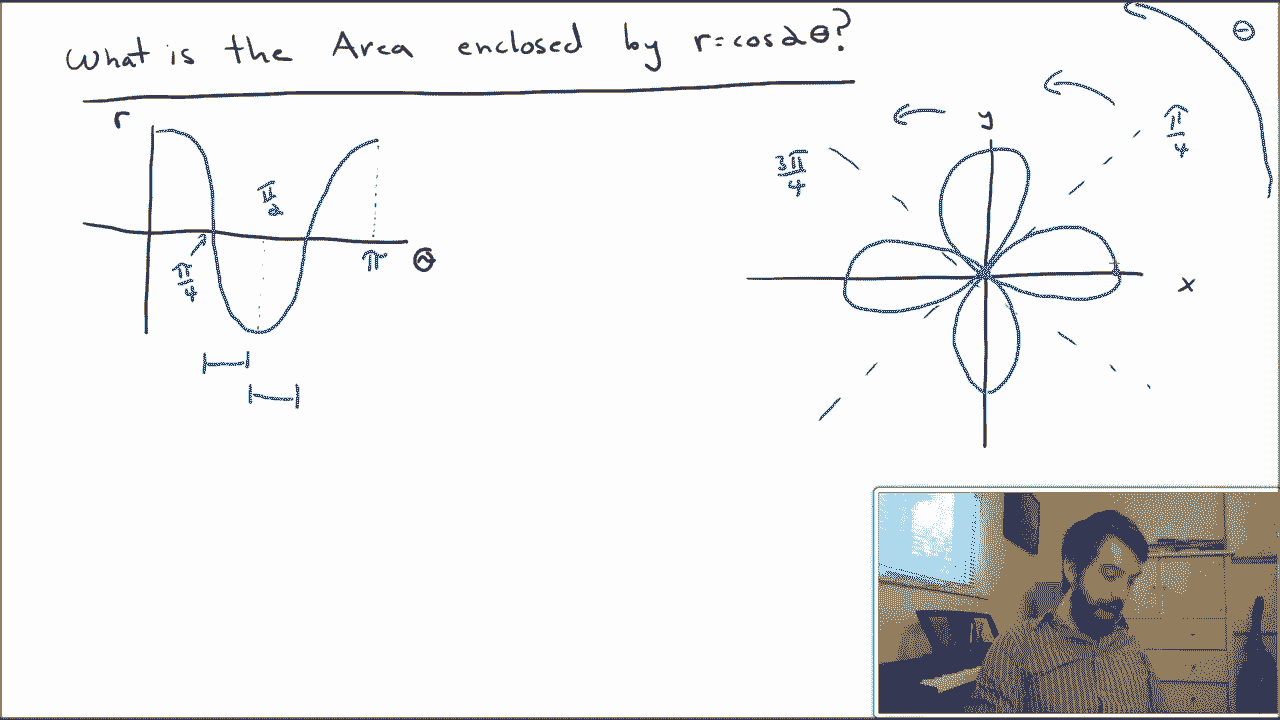 What is the Area enclosed by r=cos2θ?
r
π/2
π/4
π
θ
θ
y
π/4
3π/4
x